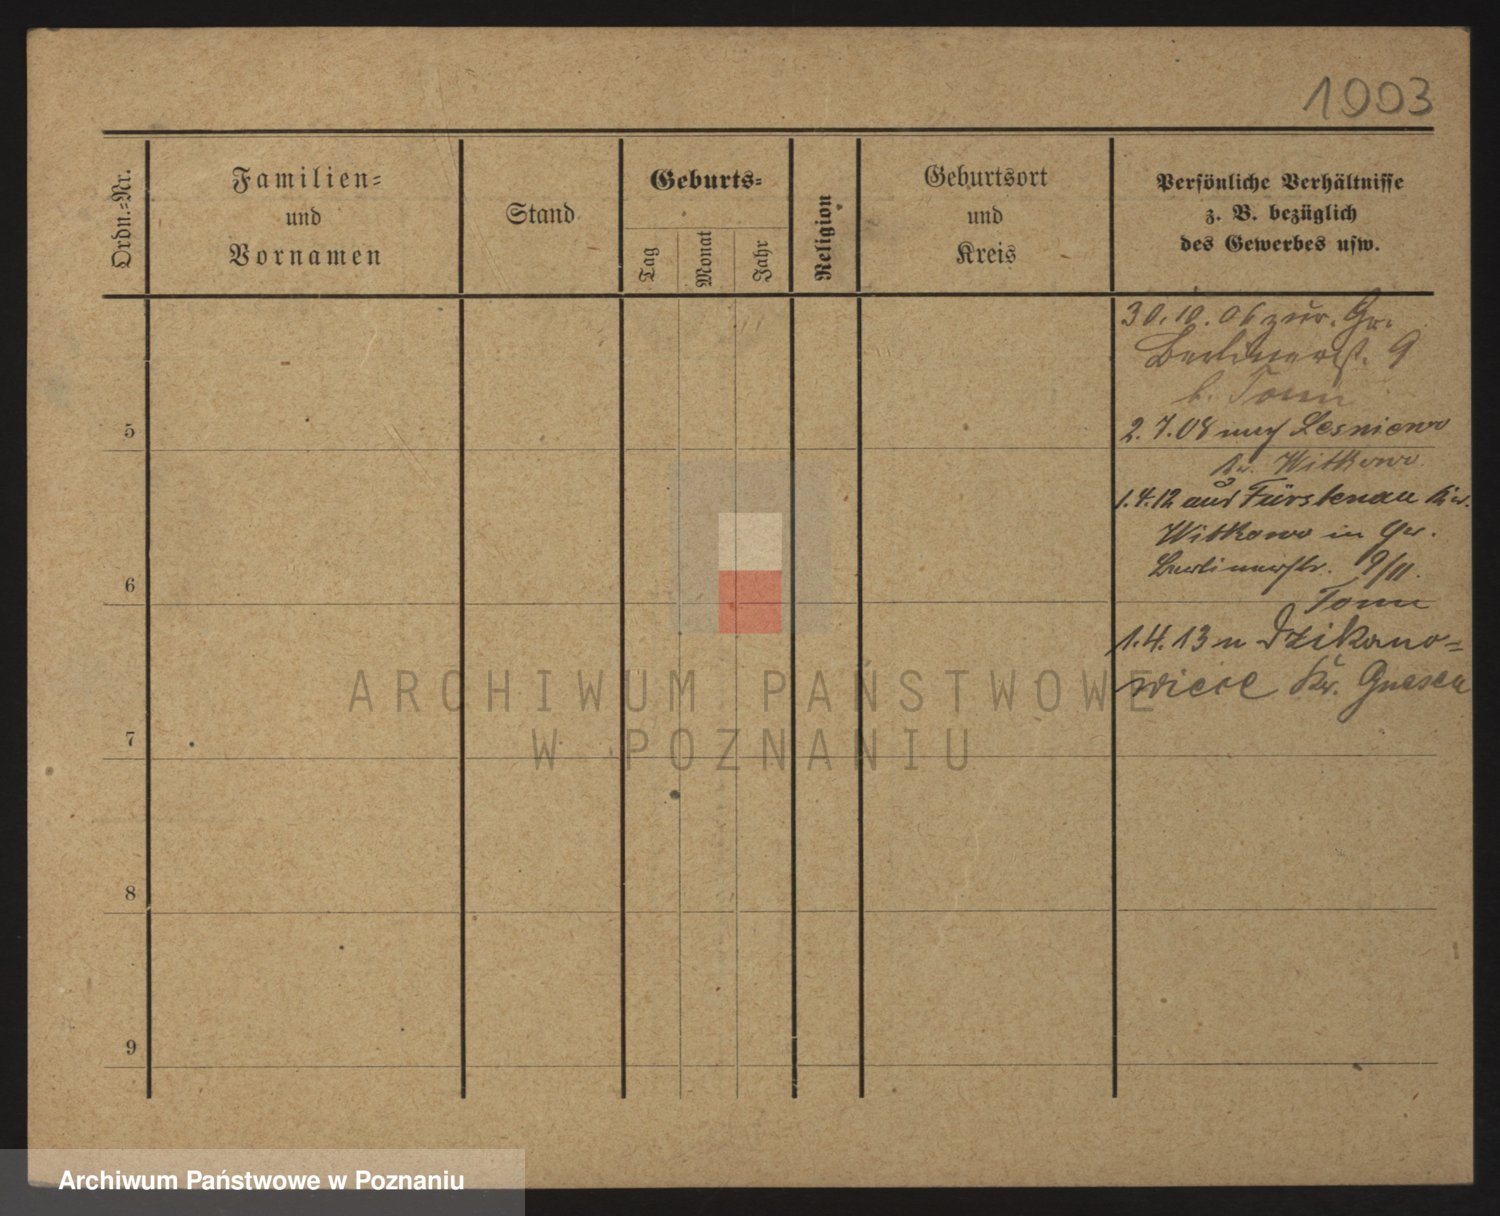 1003
Ordn.-Nr.
Familien-
und
Vornamen
Stand
Geburts-
Tag
Monat
Jahr
Religion
Geburtsort
und
Kreis
Persönliche Verhältnisse
z. B. bezüglich
des Gewerbes usw.
30.10.06 zur. Gr.
Berlinerst. 9
b. Tonn
5
2.7.08 nach Lesniewo
Kr. Witkowo
1.4.12 aus Fürstenau Kr.
Witkowo in Gr.
Berlinerstr. 9/11.
6
Tonn
1.4.13 n Dzikano-
wice Kr. Gnesen
7
8
9
ARCHIWUM PAŃSTWOWE
W POZNANIU
Archiwum Państwowe w Poznaniu